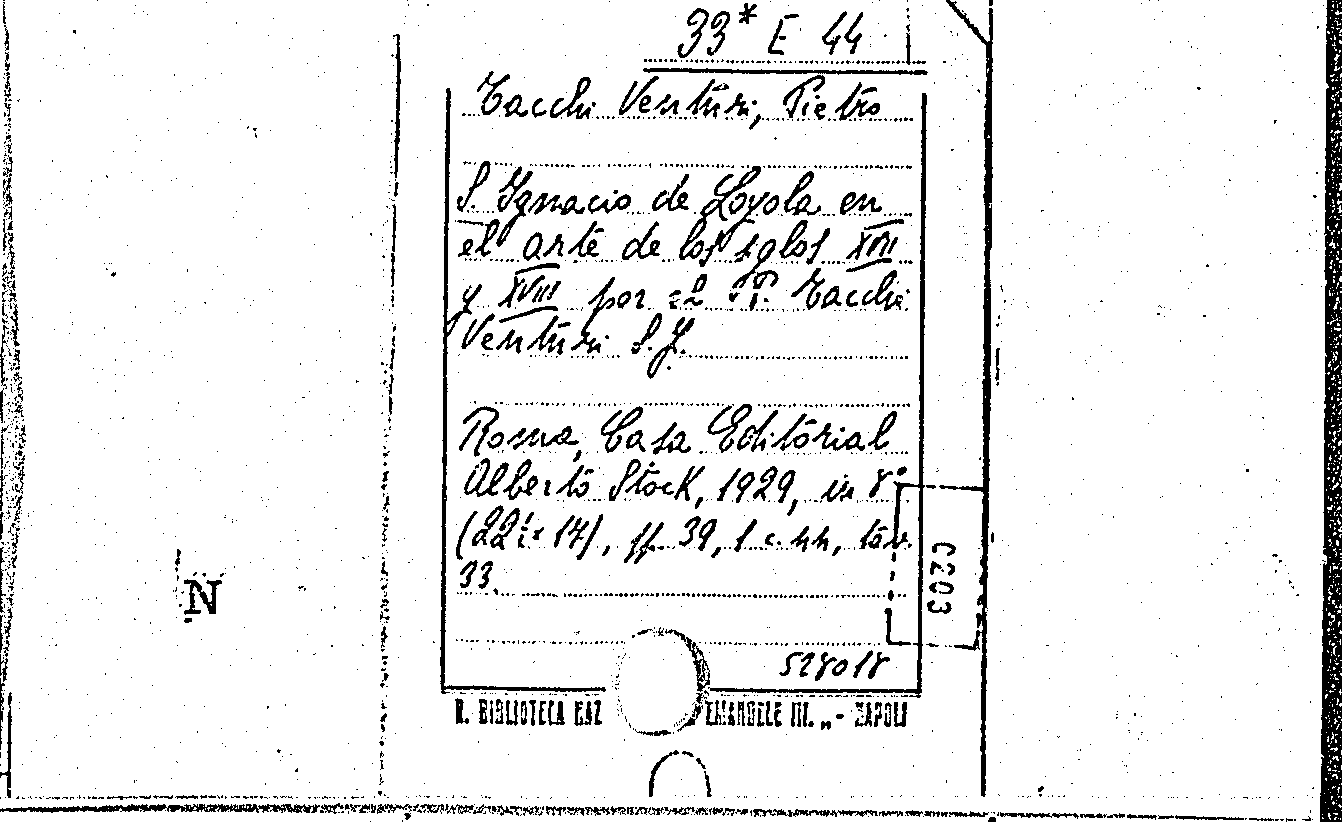 33* E 44
Tacchi Venturi, Pietro
S. Ignacio de Loyola en
el arte de los siglos XVII
y XVIII por el P. Tacchi
Venturi S.J.
Roma, Casa Editorial
Alberto Stock, 1929, in 8°
(22 x 17), pp. 39, 1 c. nn, tav.
33.
C203
N
528018
R. BIBLIOTECA NAZ EMANUELE III. „ - NAPOLI